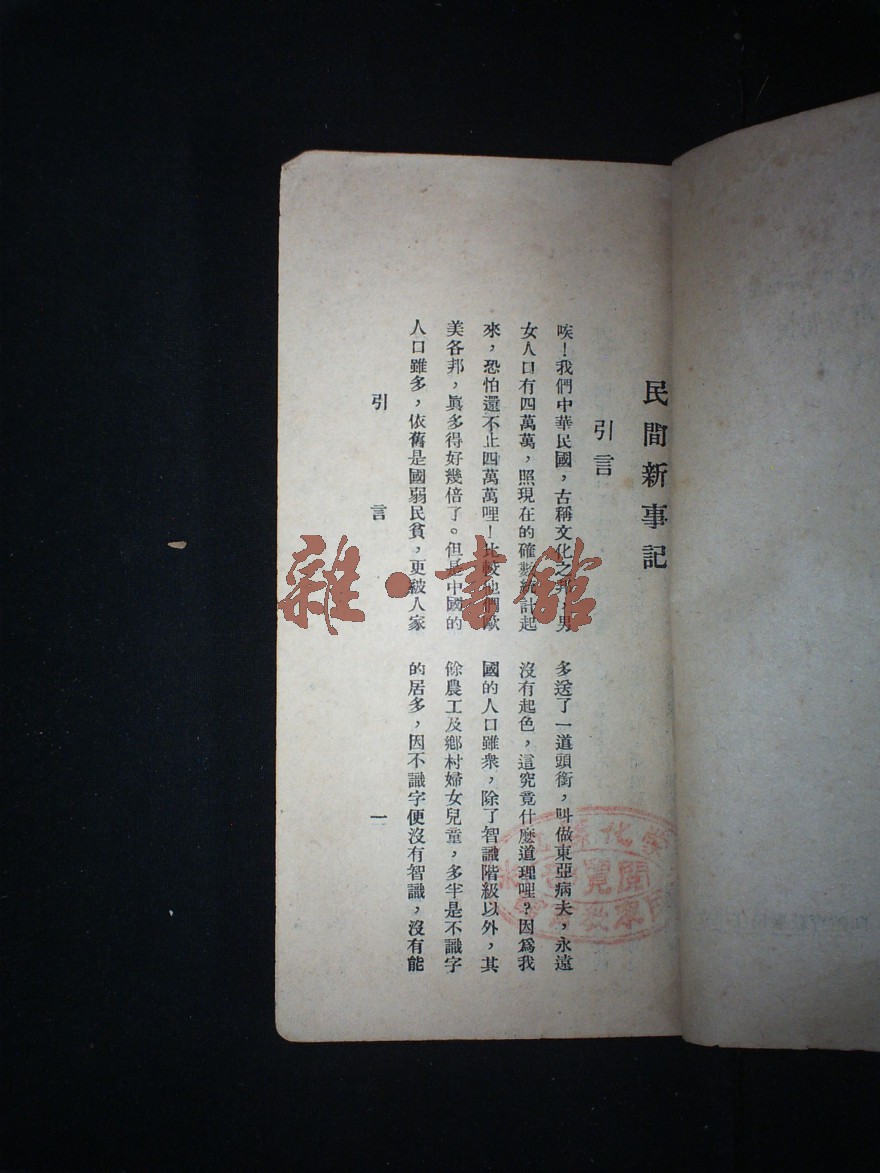 民間新事記
引言
唉！我們中華民國，古稱文化之邦，男
女人口有四萬萬，照現在的確數統計起
來，恐怕還不止四萬萬哩！比較他們歐
美各邦，眞多得好幾倍了。但是中國的
人口雖多，依舊是國弱民貧，更被人家
多送了一道頭銜，叫做東亞病夫，永遠
沒有起色，這究竟什麼道理哩？因爲我
國的人口雖衆，除了智識階級以外，其
餘農工及鄉村婦女兒童，多半是不識字
的居多，因不識字便沒有智識，沒有能
引言
一
雜·書館
閱覽